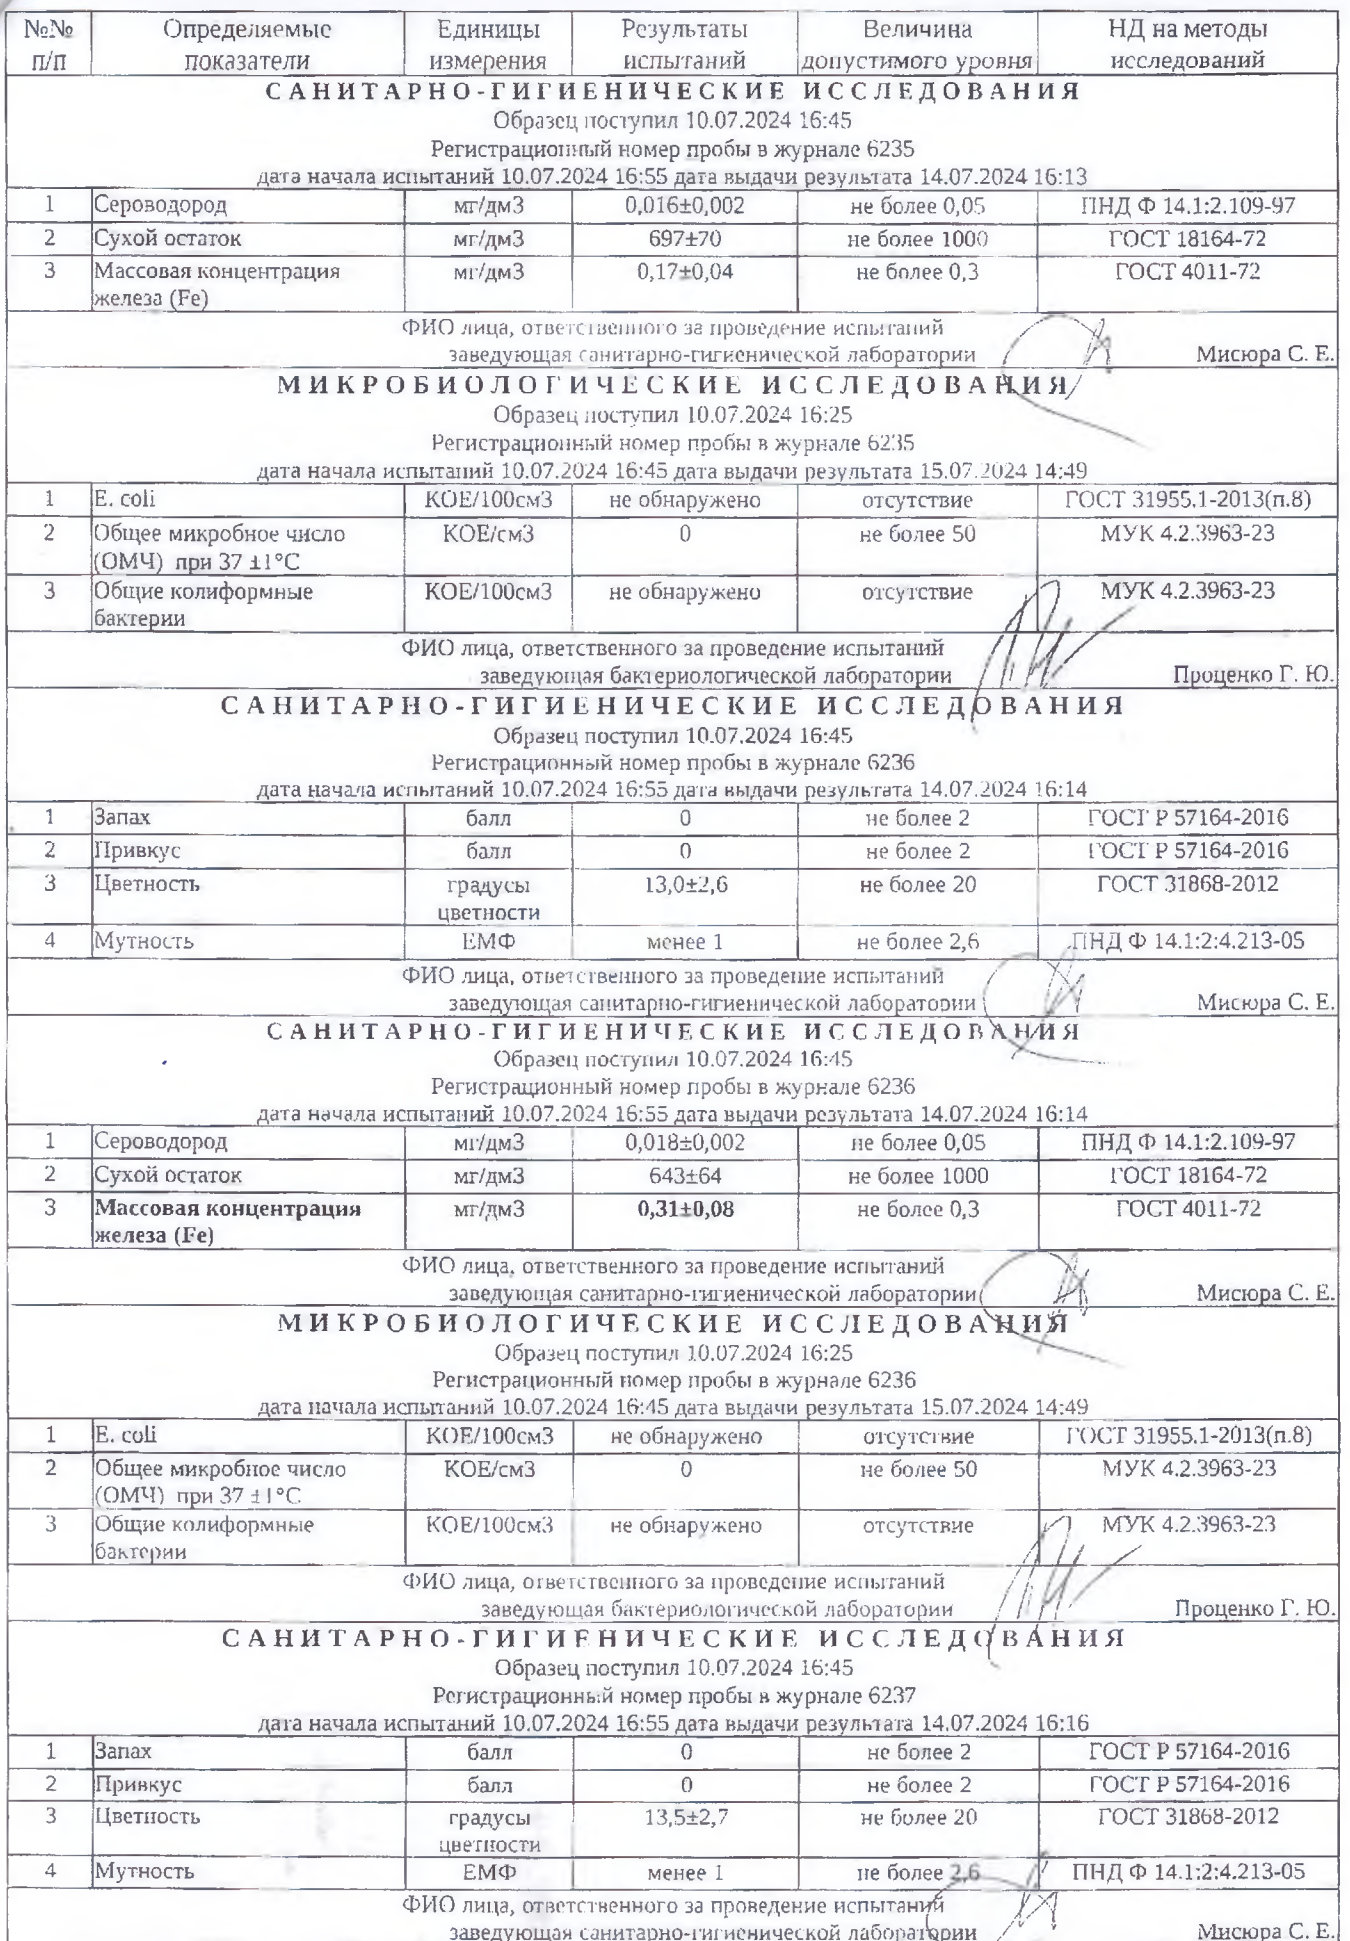 №№ п/п Определяемые показатели Единицы измерения Результаты испытаний Величина допустимого уровня НД на методы исследований
САНИТАРНО-ГИГИЕНИЧЕСКИЕ ИССЛЕДОВАНИЯ
Образец поступил 10.07.2024 16:45
Регистрационный номер пробы в журнале 6235
дата начала испытаний 10.07.2024 16:55 дата выдачи результата 14.07.2024 16:13
1 Сероводород мг/дм3 0,016±0,002 не более 0,05 ПНД Ф 14.1:2.109-97
2 Сухой остаток мг/дм3 697±70 не более 1000 ГОСТ 18164-72
3 Массовая концентрация мг/дм3 0,17±0,04 не более 0,3 ГОСТ 4011-72
железа (Fe)
ФИО лица, ответственного за проведение испытаний
заведующая санитарно-гигиенической лаборатории Мисюра С. Е.
МИКРОБИОЛОГИЧЕСКИЕ ИССЛЕДОВАНИЯ
Образец поступил 10.07.2024 16:25
Регистрационный номер пробы в журнале 6235
дата начала испытаний 10.07.2024 16:45 дата выдачи результата 15.07.2024 14:49
1 E. coli КОЕ/100см3 не обнаружено отсутствие ГОСТ 31955.1-2013(п.8)
2 Общее микробное число КОЕ/см3 0 не более 50 МУК 4.2.3963-23
(ОМЧ) при 37 ±1°С
3 Общие колиформные КОЕ/100см3 не обнаружено отсутствие МУК 4.2.3963-23
бактерии
ФИО лица, ответственного за проведение испытаний
заведующая бактериологической лаборатории Проценко Г. Ю.
САНИТАРНО-ГИГИЕНИЧЕСКИЕ ИССЛЕДОВАНИЯ
Образец поступил 10.07.2024 16:45
Регистрационный номер пробы в журнале 6236
дата начала испытаний 10.07.2024 16:55 дата выдачи результата 14.07.2024 16:14
1 Запах балл 0 не более 2 ГОСТ Р 57164-2016
2 Привкус балл 0 не более 2 ГОСТ Р 57164-2016
3 Цветность градусы 13,0±2,6 не более 20 ГОСТ 31868-2012
цветности
4 Мутность ЕМФ менее 1 не более 2,6 ПНД Ф 14.1:2:4.213-05
ФИО лица, ответственного за проведение испытаний
заведующая санитарно-гигиенической лаборатории Мисюра С. Е.
САНИТАРНО-ГИГИЕНИЧЕСКИЕ ИССЛЕДОВАНИЯ
Образец поступил 10.07.2024 16:45
Регистрационный номер пробы в журнале 6236
дата начала испытаний 10.07.2024 16:55 дата выдачи результата 14.07.2024 16:14
1 Сероводород мг/дм3 0,018±0,002 не более 0,05 ПНД Ф 14.1:2.109-97
2 Сухой остаток мг/дм3 643±64 не более 1000 ГОСТ 18164-72
3 Массовая концентрация мг/дм3 0,31±0,08 не более 0,3 ГОСТ 4011-72
железа (Fe)
ФИО лица, ответственного за проведение испытаний
заведующая санитарно-гигиенической лаборатории Мисюра С. Е.
МИКРОБИОЛОГИЧЕСКИЕ ИССЛЕДОВАНИЯ
Образец поступил 10.07.2024 16:25
Регистрационный номер пробы в журнале 6236
дата начала испытаний 10.07.2024 16:45 дата выдачи результата 15.07.2024 14:49
1 E. coli КОЕ/100см3 не обнаружено отсутствие ГОСТ 31955.1-2013(п.8)
2 Общее микробное число КОЕ/см3 0 не более 50 МУК 4.2.3963-23
(ОМЧ) при 37 ±1°С
3 Общие колиформные КОЕ/100см3 не обнаружено отсутствие МУК 4.2.3963-23
бактерии
ФИО лица, ответственного за проведение испытаний
заведующая бактериологической лаборатории Проценко Г. Ю.
САНИТАРНО-ГИГИЕНИЧЕСКИЕ ИССЛЕДОВАНИЯ
Образец поступил 10.07.2024 16:45
Регистрационный номер пробы в журнале 6237
дата начала испытаний 10.07.2024 16:55 дата выдачи результата 14.07.2024 16:16
1 Запах балл 0 не более 2 ГОСТ Р 57164-2016
2 Привкус балл 0 не более 2 ГОСТ Р 57164-2016
3 Цветность градусы 13,5±2,7 не более 20 ГОСТ 31868-2012
цветности
4 Мутность ЕМФ менее 1 не более 2,6 ПНД Ф 14.1:2:4.213-05
ФИО лица, ответственного за проведение испытаний
заведующая санитарно-гигиенической лаборатории Мисюра С. Е.